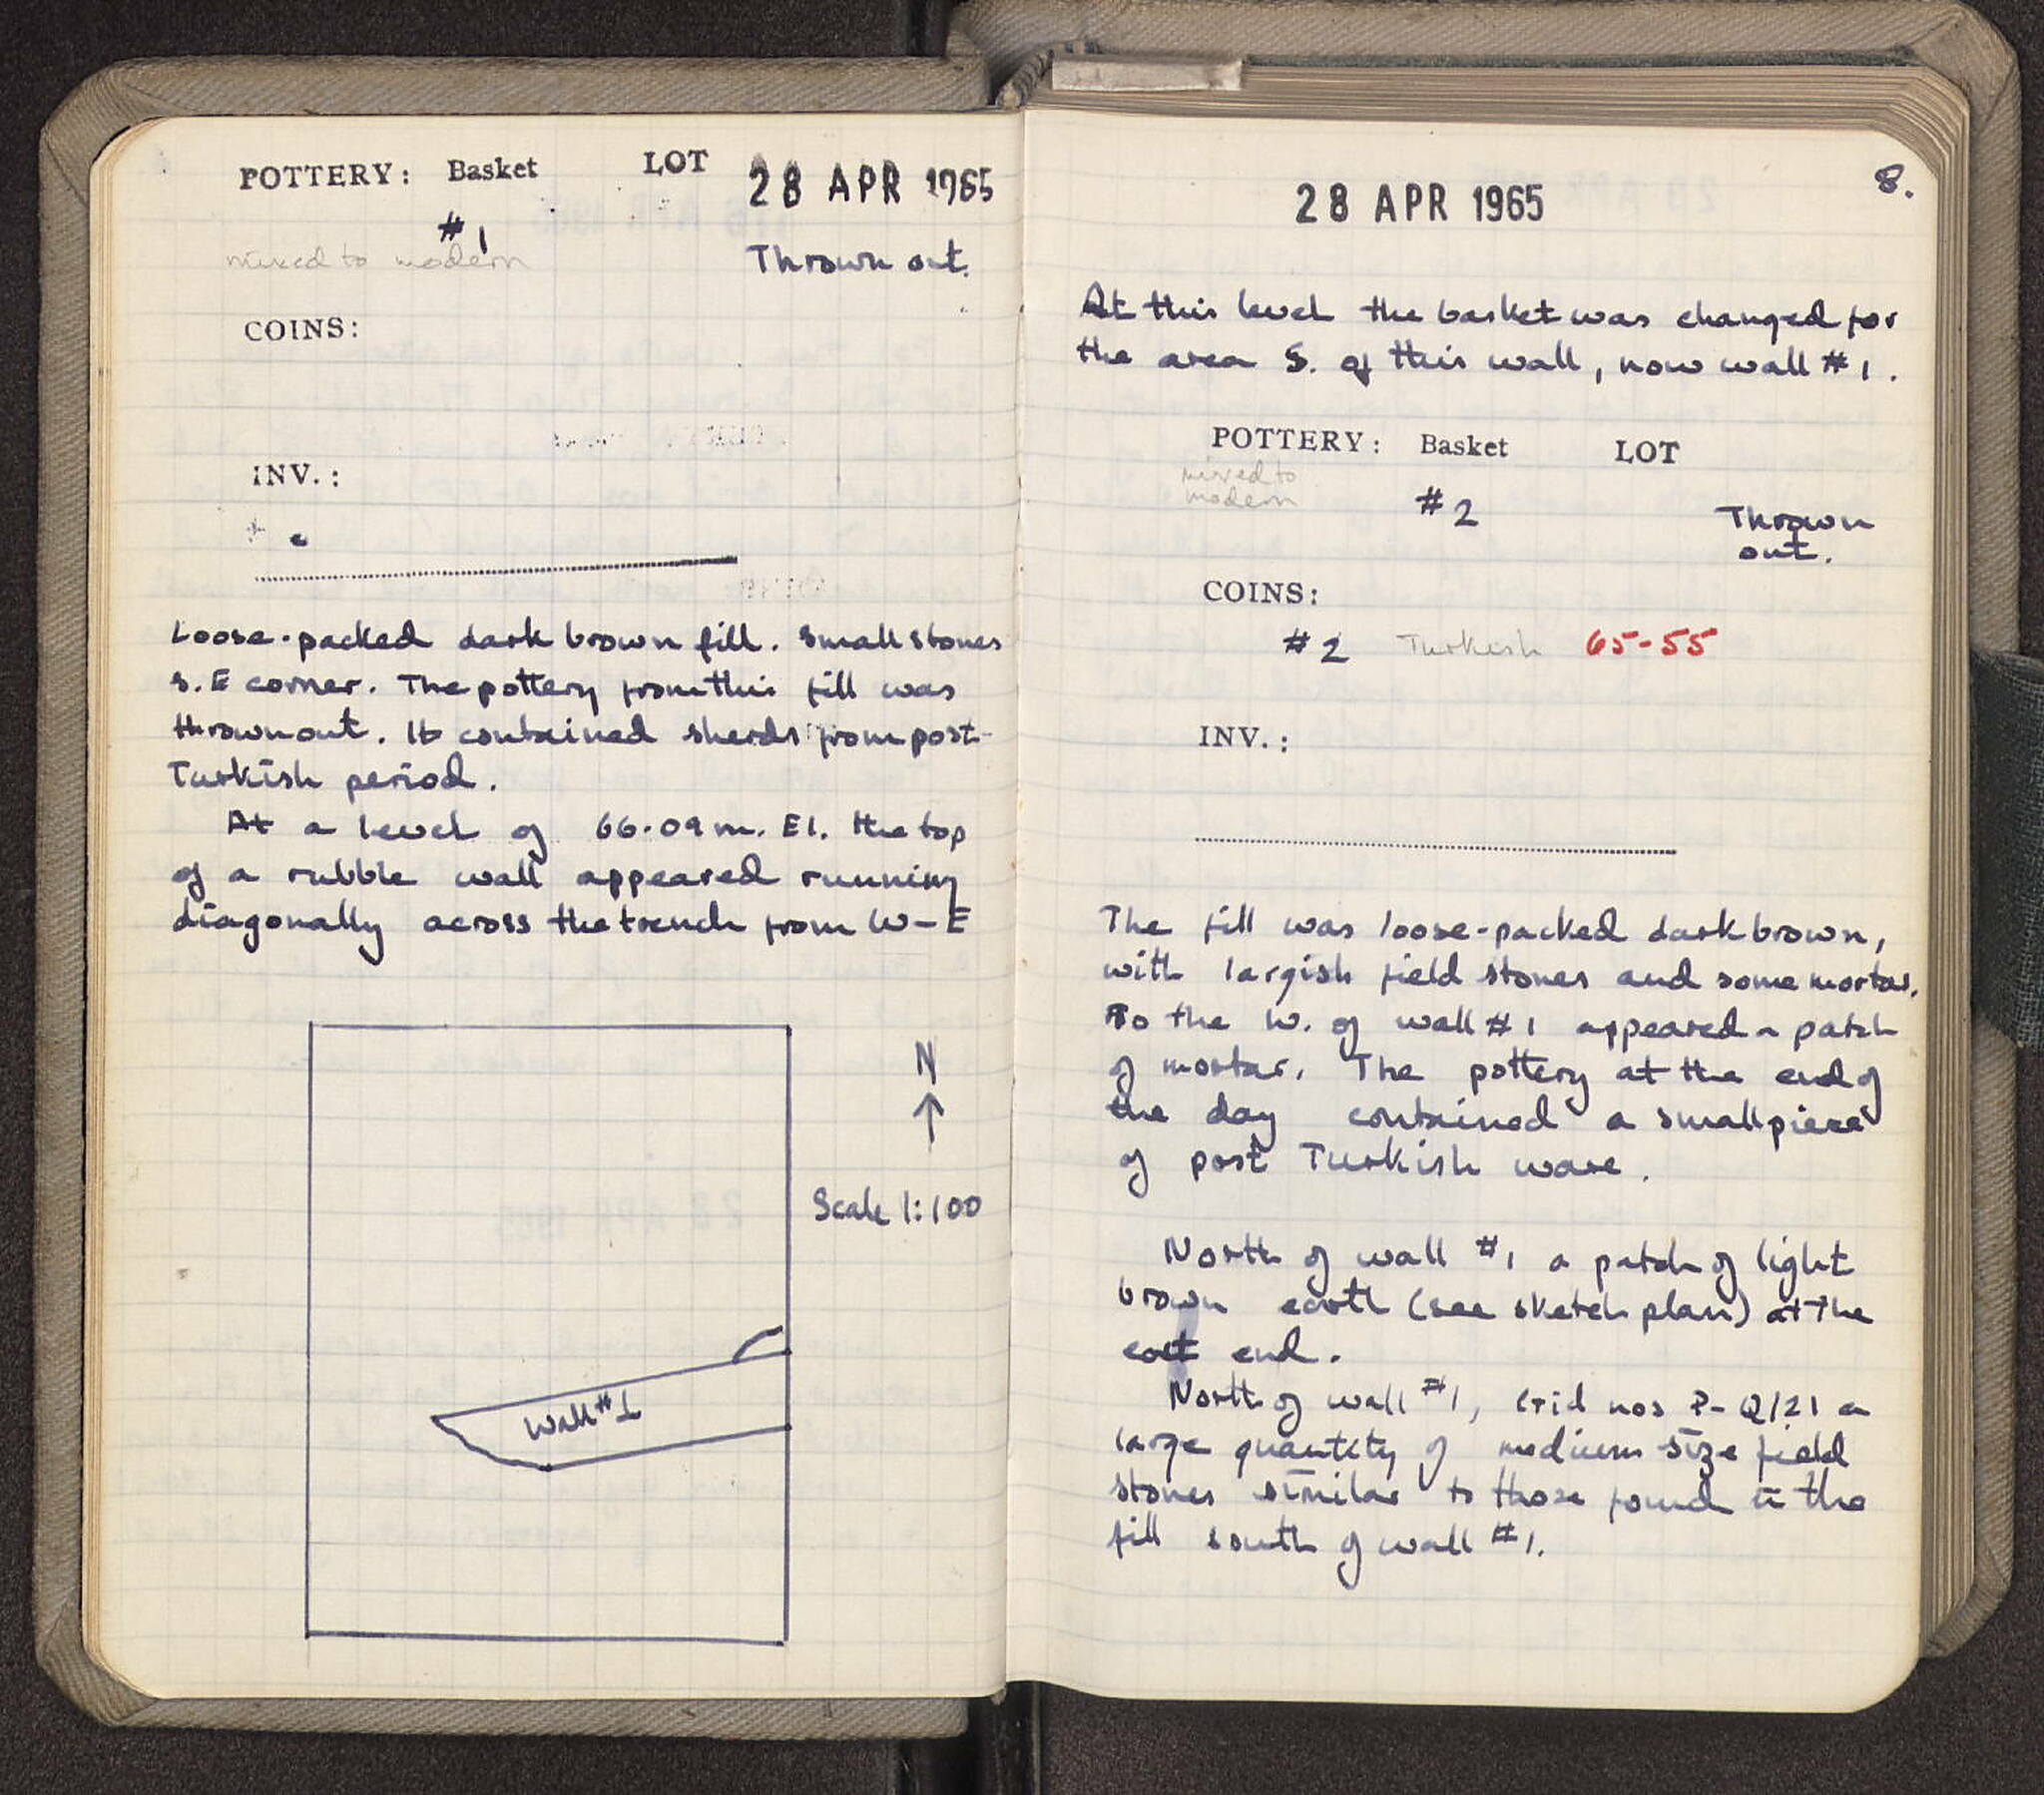 POTTERY: Basket LOT 28 APR 1965
#1
mixed to modern Thrown out.
COINS:
INV.:
Loose-packed dark brown fill. Small stones
S.E corner. The pottery from this fill was
thrown out. It contained sherds from post-
Turkish period.
At a level of 66.09m. El. the top
of a rubble wall appeared running
diagonally across the trench from W-E
N
Scale 1:100
Wall #1
8.
28 APR 1965
At this level the basket was changed for
the area S. of this wall, now wall #1.
POTTERY: Basket LOT
mixed to
modern
#2
Thrown
out.
COINS:
#2 Turkish 65-55
INV.:
The fill was loose-packed dark brown,
with largish field stones and some mortar.
To the W. of wall #1 appeared a patch
of mortar. The pottery at the end of
the day contained a small piece
of post Turkish ware.
North of wall #1 a patch of light
brown earth (see sketch plan) at the
east end.
North of wall #1, Grid nos P-Q/21 a
large quantity of medium size field
stones similar to those found in the
fill south of wall #1.